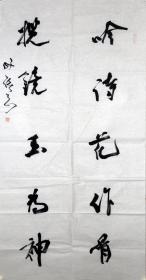 吟诗花作骨
揽镜玉为神